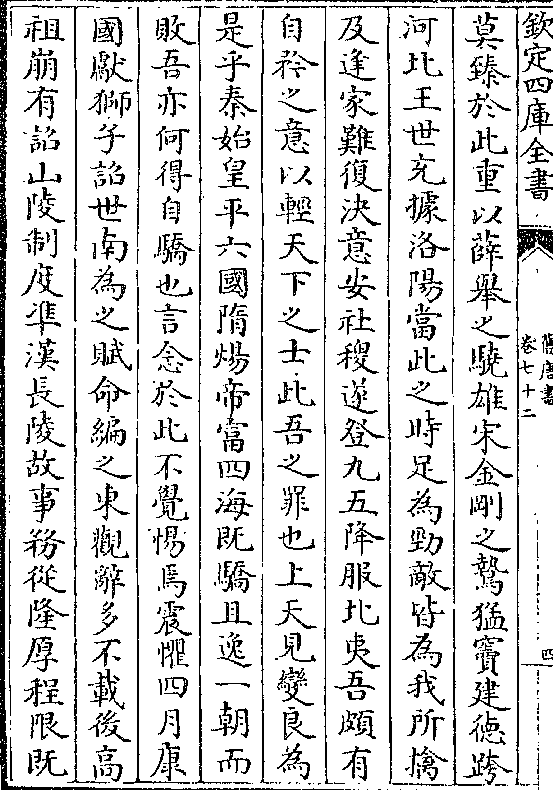 欽定四庫全書
莫臻於此重以薛舉之驍雄宋金剛之鷙猛竇建德跨
河北王世充據洛陽當此之時足為勁敵皆為我所擒
及逢家難復決意安社稷遂登九五降服北夷吾頗有
自矜之意以輕天下之士此吾之罪也上天見變良為
是乎秦始皇平六國隋煬帝富四海既驕且逸一朝而
敗吾亦何得自驕也言念於此不覺惕焉震懼四月康
國獻獅子詔世南為之賦命編之東觀辭多不載後高
祖崩有詔山陵制度準漢長陵故事務從隆厚程限既
舊唐書
卷七十二
四